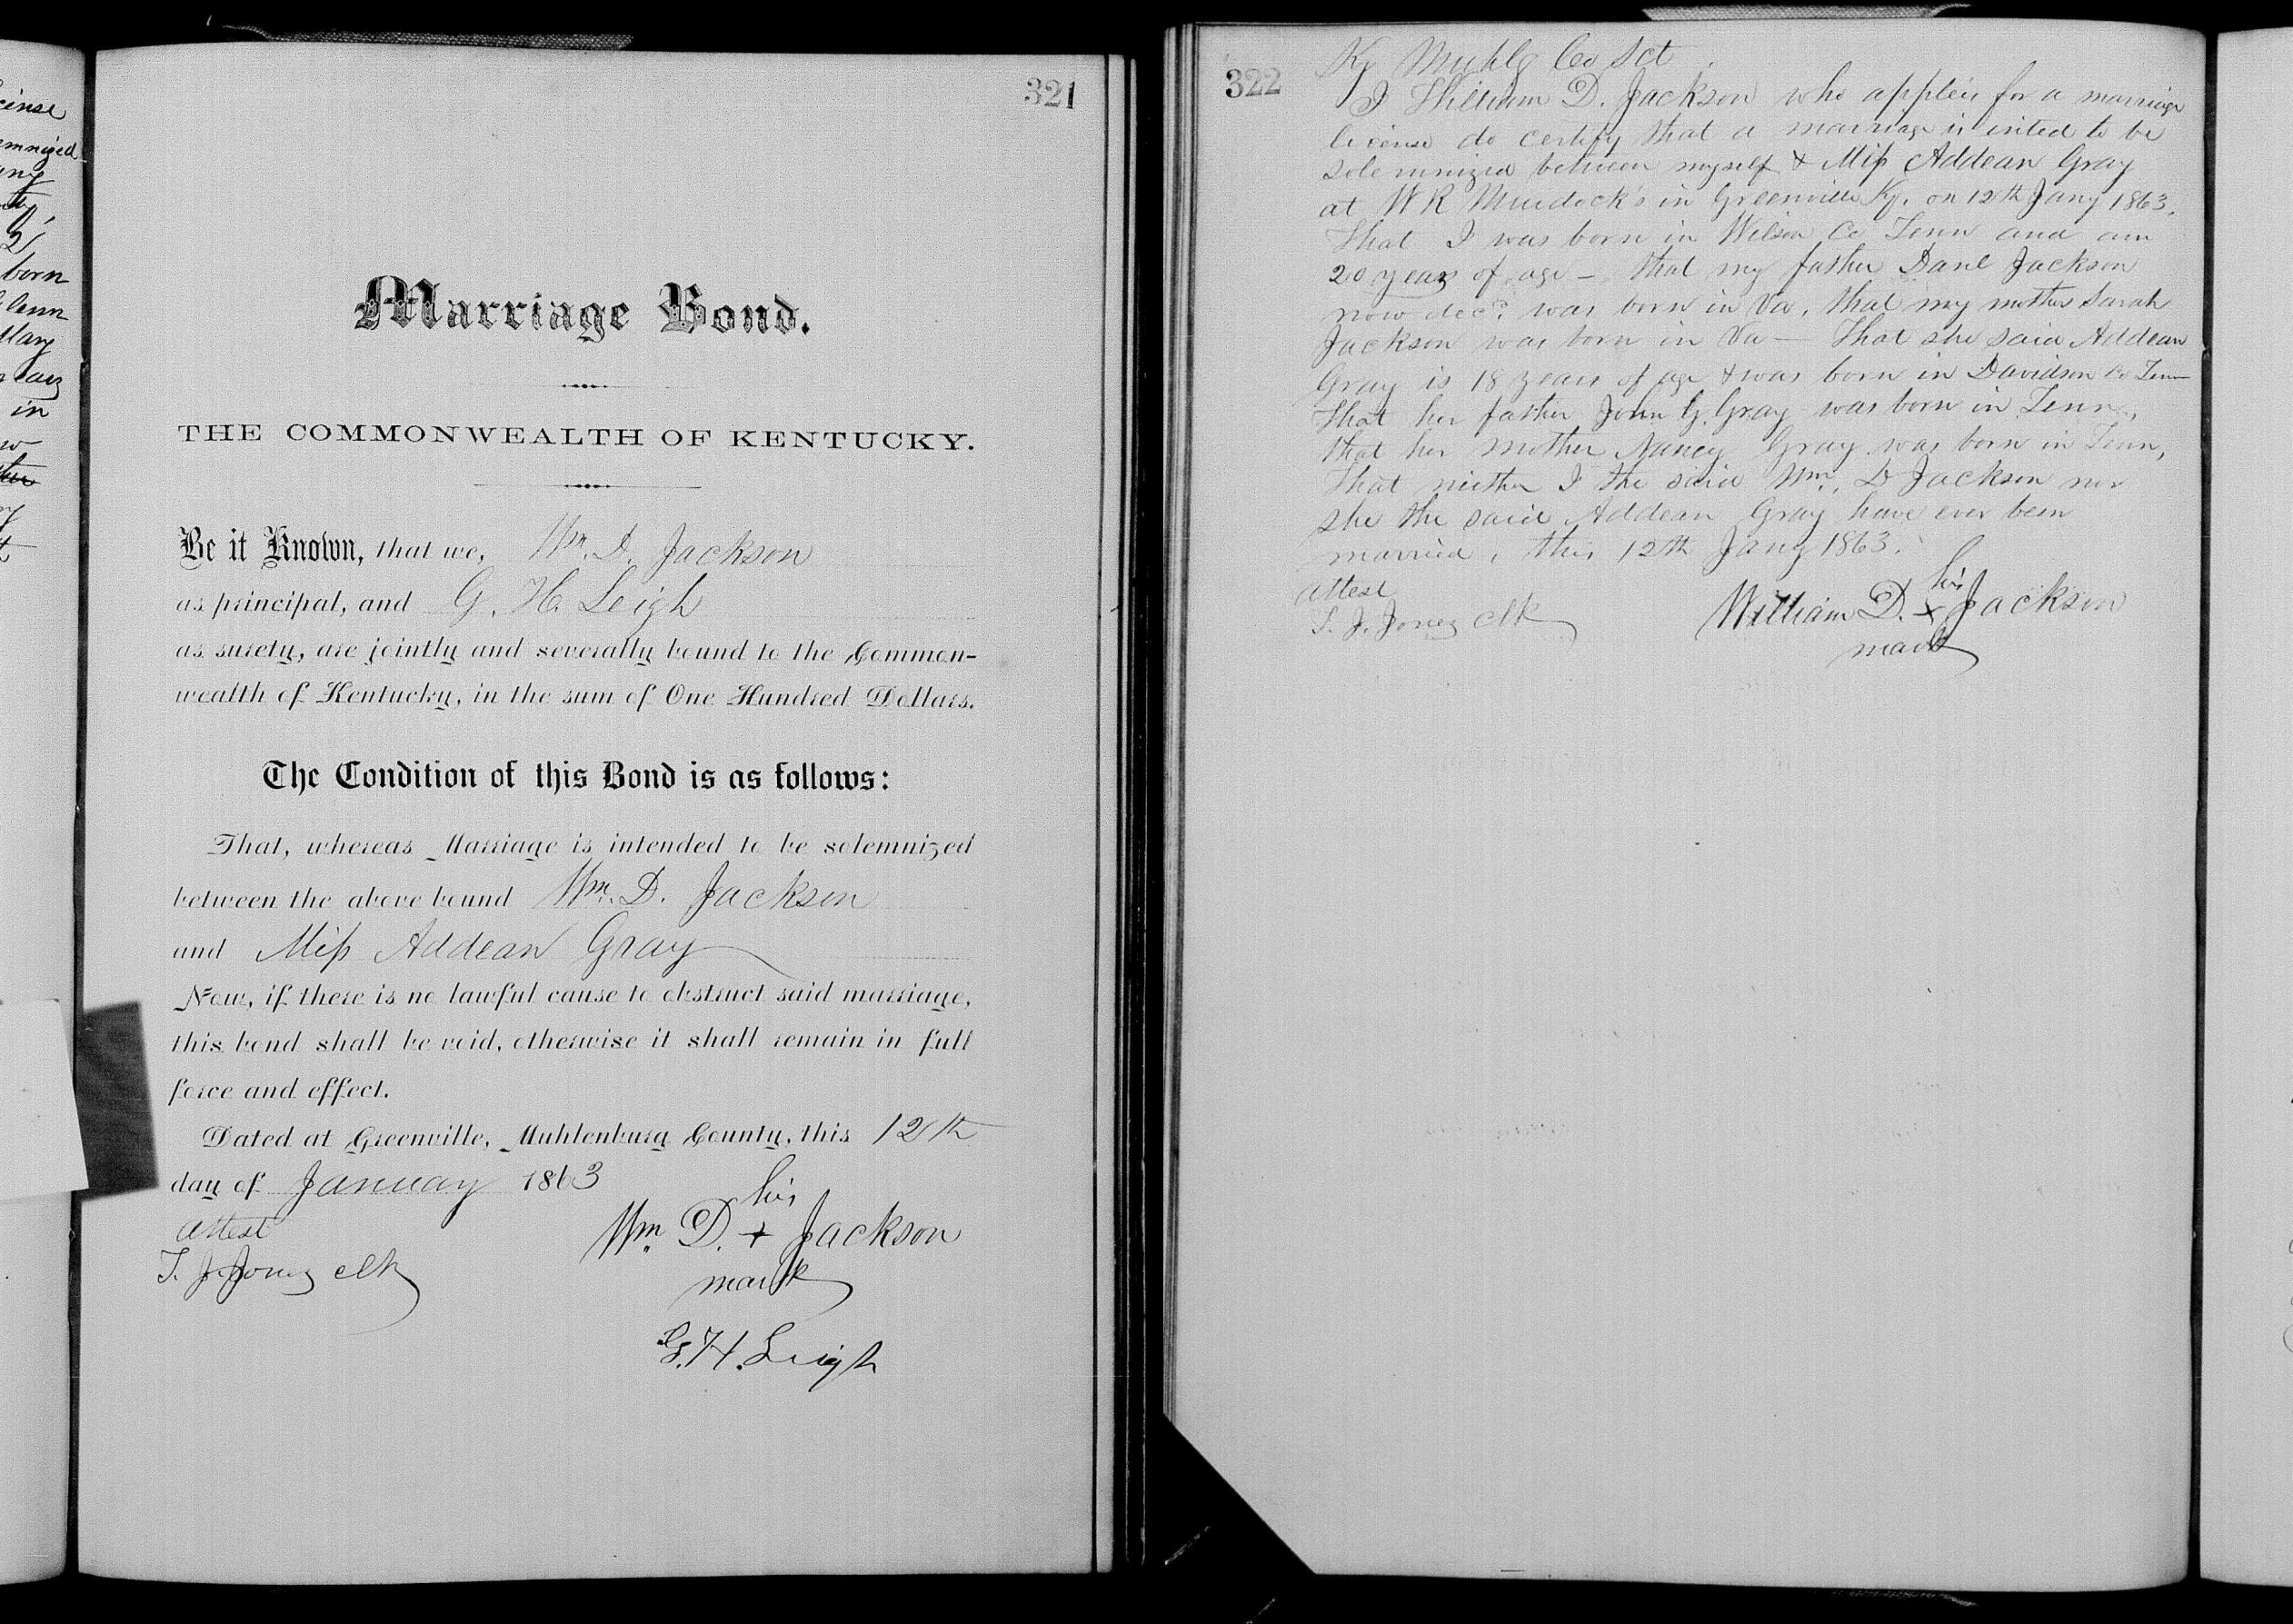 cinse
emnized
born
Mary
in
321
Marriage Bond.
THE COMMONWEALTH OF KENTUCKY.
Be it Known, that we, Wm. D. Jackson
as principal, and G. H. Leigh
as surety, are jointly and severally bound to the Common-
wealth of Kentucky, in the sum of One Hundred Dollars.
The Condition of this Bond is as follows:
That, whereas Marriage is intended to be solemnized
between the above bound Wm. D. Jackson
and Miss Addean Gray
Now, if there is no lawful cause to obstruct said marriage,
this bond shall be void, otherwise it shall remain in full
force and effect.
Dated at Greenville, Muhlenburg County, this 12th
day of January 1863
his
attest
Wm. D. + Jackson
T. J. Jones clk
mark
G. H. Leigh
322
Ky Muhlg Co Sct
I William D. Jackson who appleis for a marriage
license do certify that a marriage is inted to be
solemnized between myself & Miss Addean Gray
at W R Murdock's in Greenville Ky. on 12th Jany 1863.
that I was born in Wilson Co Tenn and am
20 years of age - that my father Danl Jackson
now decd. was born in Va, that my mother Sarah
Jackson was born in Va - that she said Addean
Gray is 18 years of age & was born in Davidson Co Tenn
that her father John G. Gray was born in Tenn.,
that her mother Nancy Gray was born in Tenn,
that neither I the said Wm. D Jackson nor
she the said Addean Gray have ever been
married, this 12th Jany 1863.
attest
his
T. J. Jones clk
William D. x Jackson
mark